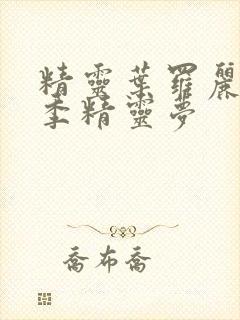 精靈葉羅麗
季精靈夢
喬布喬